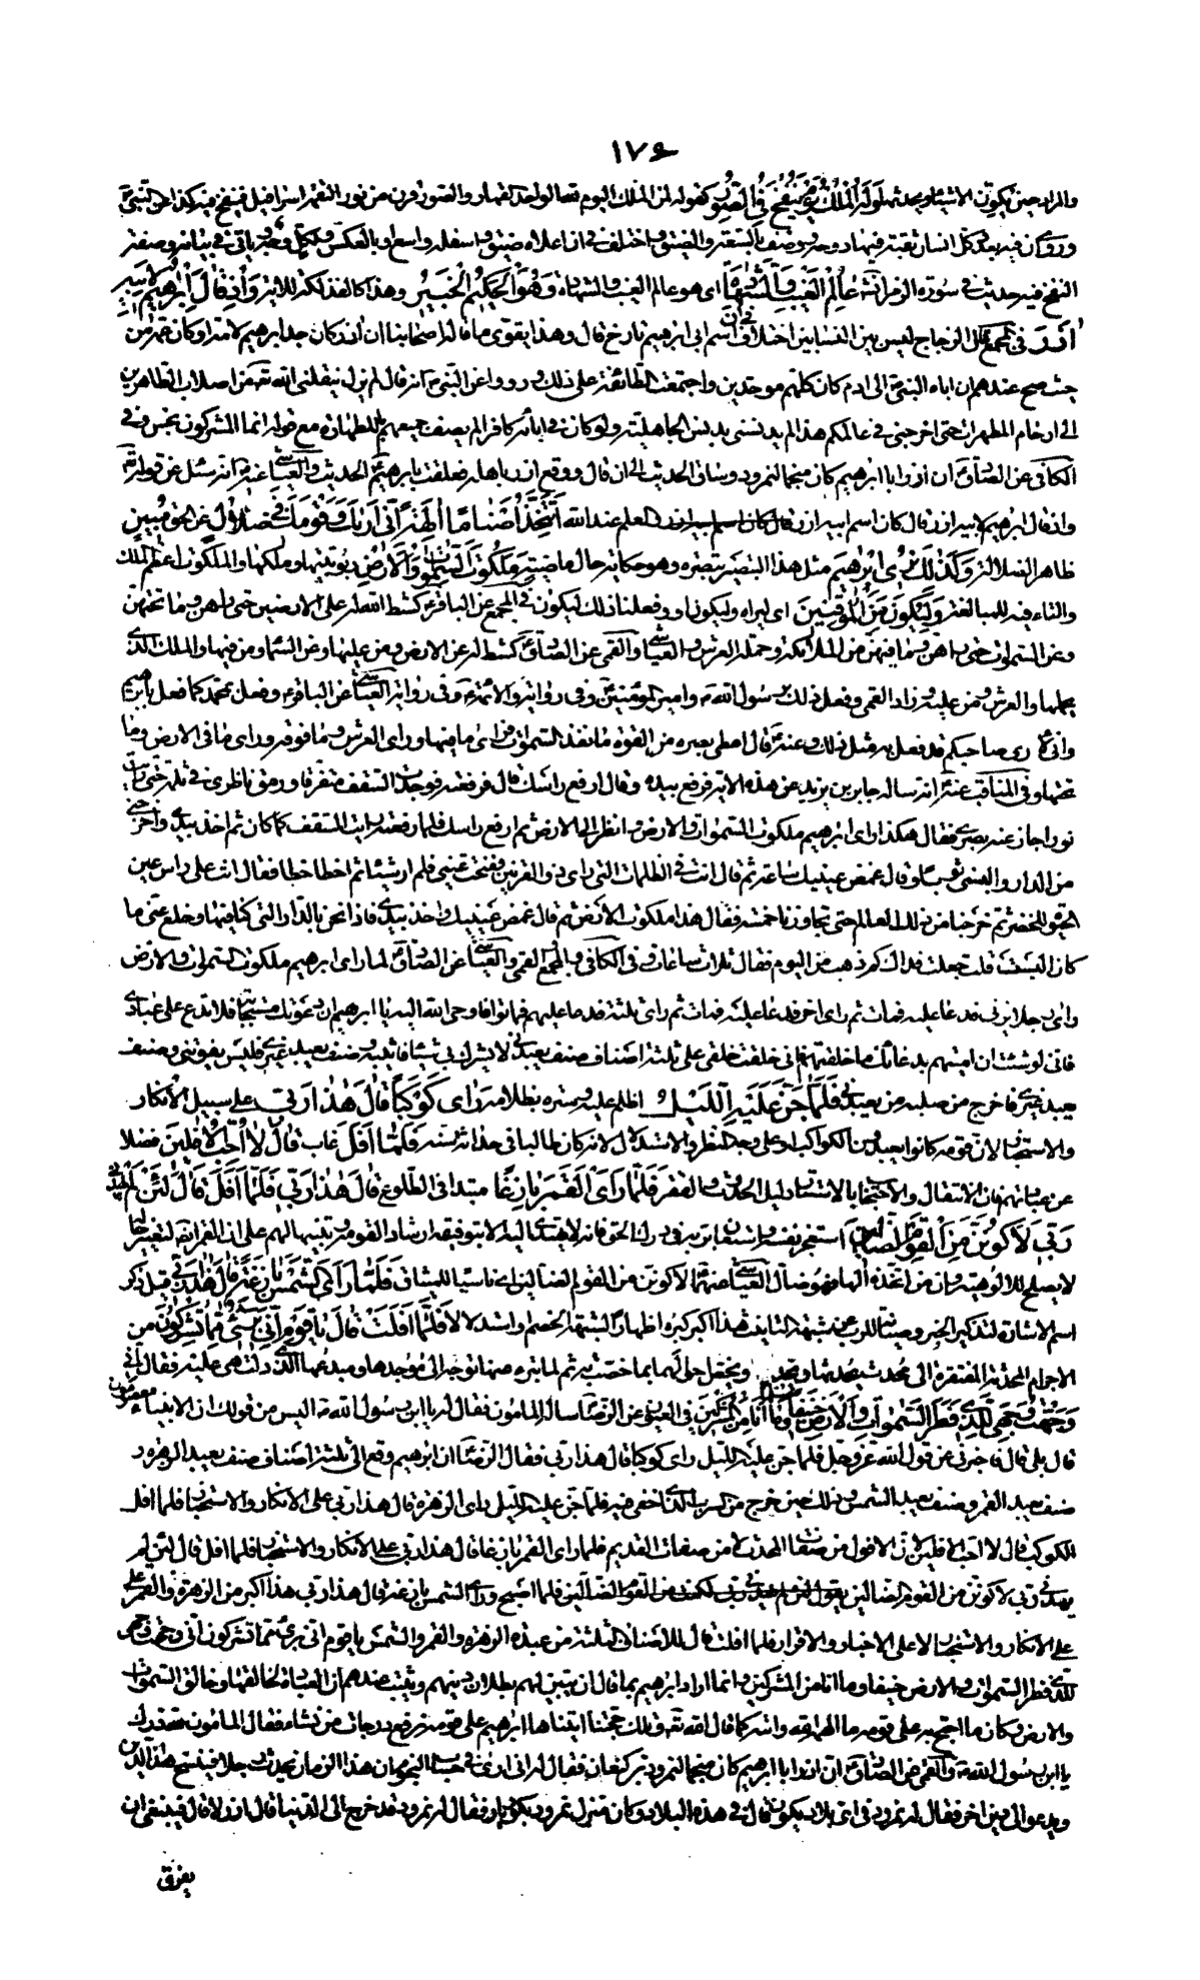 ١٧٤
والمراد حين يكون الاشياء ويحدثها وَلَهُ الْمُلْكُ يَوْمَ يُنْفَخُ فِي الصُّورِ كقوله لمن الملك اليوم لله الواحد القهار والصور قرن من نور التقمه اسرافيل فينفخ فيه كذا عن النبي ص
وروى ان فيه بعدد كل انسان ثقبة فيها روحه ووصف بالسعة والضيق واختلف في ان اعلاه ضيق واسفله واسع او بالعكس ولكل وجه وياتي في بيانه وصفة
النفخ فيه حديث في سورة الزمر انشاء الله عَالِمُ الْغَيْبِ وَالشَّهَادَةِ اى هو عالم الغيب والشهادة وَهُوَ الْحَكِيمُ الْخَبِيرُ وهذا كالفذلكة للاية وَإِذْ قَالَ إِبْرَاهِيمُ لِأَبِيهِ
آزَرَ في المجمع قال الزجاج ليس بين النسابين اختلاف في ان اسم ابي ابرهيم تارخ قال وهذا يقوى ما قاله اصحابنا ان آزر كان جد ابرهيم لامه او كان عمه من
حيث صح عندهم ان اباء النبي ص الى ادم كان كلهم موحدين واجتمعت الطائفة على ذلك ورووا عن النبي ص انه قال لم يزل ينقلني الله تعالى من اصلاب الطاهرين
الى ارحام المطهرات حتى اخرجني في عالمكم هذا لم يدنسني بدنس الجاهلية ولو كان في ابائه كافر لم يصف جميعهم بالطهارة مع قوله انما المشركون نجس وفي
الكافي عن الصادق ع ان آزر ابا ابرهيم كان منجما لنمرود وساق الحديث الى ان قال ووقع ازر باهله فعلقت بابرهيم ع الحديث والعياشي عنه ع انه سئل عن قوله تعالى
واذ قال ابرهيم لابيه ازر قال كان اسم ابيه ازر والعلم عند الله أَتَتَّخِذُ أَصْنَامًا آلِهَةً إِنِّي أَرَاكَ وَقَوْمَكَ فِي ضَلَالٍ عن الحق مُبِينٍ
ظاهر الضلالة وَكَذَلِكَ نُرِي إِبْرَاهِيمَ مثل هذا التبصير نبصره وهو حكاية حال ماضية مَلَكُوتَ السَّمَوَاتِ وَالْأَرْضِ ربوبيتها وملكها والملكوت اعظم الملك
والتاء فيه للمبالغة وَلِيَكُونَ مِنَ الْمُوقِنِينَ اى ليراه وليكون او وفعلنا ذلك ليكون في المجمع عن الباقر ع كشط الله له عن الارضين حتى راهن وما تحتهن
وعن السموات حتى راهن وما فيهن من الملائكة وحملة العرش والعياشي والقمي عن الصادق ع كشط له عن الارض ومن عليها وعن السماء ومن فيها والملك الذي
يحملها والعرش ومن عليه وزاد القمي وفعل ذلك برسول الله ص وامير المؤمنين ع وفي رواية والائمة ع وفي رواية العياشي عن الباقر ع وفعل بمحمد كما فعل بابرهيم
واني لارى صاحبكم قد فعل به مثل ذلك وعنه ع قال اعطى بصره من القوة ما نفذ السموات فراى ما فيها وراى العرش وما فوقه وراى ما في الارض وما
تحتها وفي المناقب عنه ع انه ساله جابر بن يزيد عن هذه الاية فرفع بيده وقال ارفع راسك قال فرفعته فوجدت السقف متفرقا ورمق ناظري في ثلمة حتى رايت
نورا حار عنه بصري فقال هكذا راى ابرهيم ملكوت السموات والارض وانظر الى الارض ثم ارفع راسك فلما رفعته رايت السقف كما كان ثم اخذ بيدي واخرجني
من الدار والبسني ثوبا وقال غمض عينيك ساعة ثم قال انت في الظلمات التي راى ذو القرنين ففتحت عيني فلم ار شيئا ثم اخطا خطا فقال انت على راس عين
الحيوة للخضر ثم خرجنا من ذلك العالم حتى تجاوزنا خمسة فقال هذا ملكوت الارض ثم قال غمض عينيك واخذ بيدي فاذا نحن بالدار التي كنا فيها وخلع عني ما
كان البسنيه فقلت جعلت فداك كم ذهب من اليوم فقال ثلاث ساعات وفي الكافي والمجمع والقمي والعياشي عن الصادق ع لما راى ابرهيم ملكوت السموات والارض
راى رجلا يزني فدعا عليه فمات ثم راى اخر فدعا عليه فمات ثم راى ثلثة فدعا عليهم فماتوا فاوحى الله اليه يا ابرهيم ان دعوتك مستجابة فلا تدع على عبادي
فاني لو شئت ان اميتهم بدعائك ما خلقتهم فاني خلقت خلقي على ثلثة اصناف صنف يعبدني لا يشرك بي شيئا فاثيبه وصنف يعبد غيري فليس يفوتني وصنف
يعبد غيري فاخرج من صلبه من يعبدني فَلَمَّا جَنَّ عَلَيْهِ اللَّيْلُ اظلم عليه وستره بظلامه رَأَى كَوْكَبًا قَالَ هَذَا رَبِّي على سبيل الانكار
والاستخبار لان قومه كانوا يعبدون الكواكب او على وجه النظر والاستدلال لانه كان طالبا في حداثة سنه فَلَمَّا أَفَلَ غاب قَالَ لَا أُحِبُّ الْآفِلِينَ فضلا
عن عبادتهم فان الانتقال والاحتجاب بالاستتار دليل الحدوث والفقر فَلَمَّا رَأَى الْقَمَرَ بَازِغًا مبتدئا في الطلوع قَالَ هَذَا رَبِّي فَلَمَّا أَفَلَ قَالَ لَئِنْ لَمْ يَهْدِنِي
رَبِّي لَأَكُونَنَّ مِنَ الْقَوْمِ الضَّالِّينَ استعجز نفسه واستعان بربه في درك الحق فانه لا يهتدى اليه الا بتوفيقه ارشادا لقومه وتنبيها لهم على ان القمر ايضا لتغير حاله
لا يصلح للالوهية وان من اتخذه الها فهو ضال العياشي عنهما ع لاكونن من القوم الضالين اى ناسيا للميثاق فَلَمَّا رَأَى الشَّمْسَ بَازِغَةً قَالَ هَذَا رَبِّي قيل ذكر
اسم الاشارة لتذكير الخبر وصيانة للرب عن شبهة التانيث هَذَا أَكْبَرُ كبره اظهارا لشبهة الخصم او استدلالا فَلَمَّا أَفَلَتْ قَالَ يَا قَوْمِ إِنِّي بَرِيءٌ مِمَّا تُشْرِكُونَ من
الاجرام المحدثة المفتقرة الى محدث يحدثها ومخصص يخصصها بما خصت به ثم لما تبرء منها توجه الى موجدها ومبدعها الذي دلت هي عليه فقال إِنِّي
وَجَّهْتُ وَجْهِيَ لِلَّذِي فَطَرَ السَّمَوَاتِ وَالْأَرْضَ حَنِيفًا وَمَا أَنَا مِنَ الْمُشْرِكِينَ في العيون عن الرضا ع ساله المامون فقال له يا ابن رسول الله ص اليس من قولك ان الانبياء معصومون
قال بلى قال فاخبرني عن قول الله عز وجل فلما جن عليه الليل راى كوكبا قال هذا ربي فقال الرضا ع ان ابرهيم وقع الى ثلثة اصناف صنف يعبد الزهرة و
صنف يعبد القمر وصنف يعبد الشمس وذلك حين خرج من السرب الذي اخفى فيه فلما جن عليه الليل راى الزهرة قال هذا ربي على الانكار والاستخبار فلما افل
الكوكب قال لا احب الافلين لان الافول من صفات المحدث لا من صفات القديم فلما راى القمر بازغا قال هذا ربي على الانكار والاستخبار فلما افل قال لئن لم
يهدني ربي لاكونن من القوم الضالين يقول لو لم يهدني ربي لكنت من القوم الضالين فلما اصبح وراى الشمس بازغة قال هذا ربي هذا اكبر من الزهرة والقمر على
على الانكار والاستخبار لا على الاخبار والاقرار فلما افلت قال للاصناف الثلثة من عبدة الزهرة والقمر والشمس يا قوم اني بريء مما تشركون اني وجهت وجهي
للذي فطر السموات والارض حنيفا وما انا من المشركين وانما اراد ابرهيم بما قال ان يتبين لهم بطلان دينهم ويثبت عندهم ان العبادة لخالقها وخالق السموات
والارض وكان ما احتج به على قومه مما الهمه الله واتاه كما قال الله تعالى وتلك حجتنا اتيناها ابرهيم على قومه نرفع درجات من نشاء فقال المامون لله درك
يا ابن رسول الله ص والقمي عن الصادق ع ان ازر ابا ابرهيم كان منجما لنمرود بن كنعان فقال له اني ارى في حساب النجوم ان هذا الزمان يحدث رجلا فينسخ هذا الدين
ويدعو الى دين اخر فقال له نمرود في اى بلاد يكون قال في هذه البلاد وكان منزل نمرود بكوثى ربا فقال له نمرود قد خرج الى الدنيا قال ازر لا قال فينبغي ان
يفرق